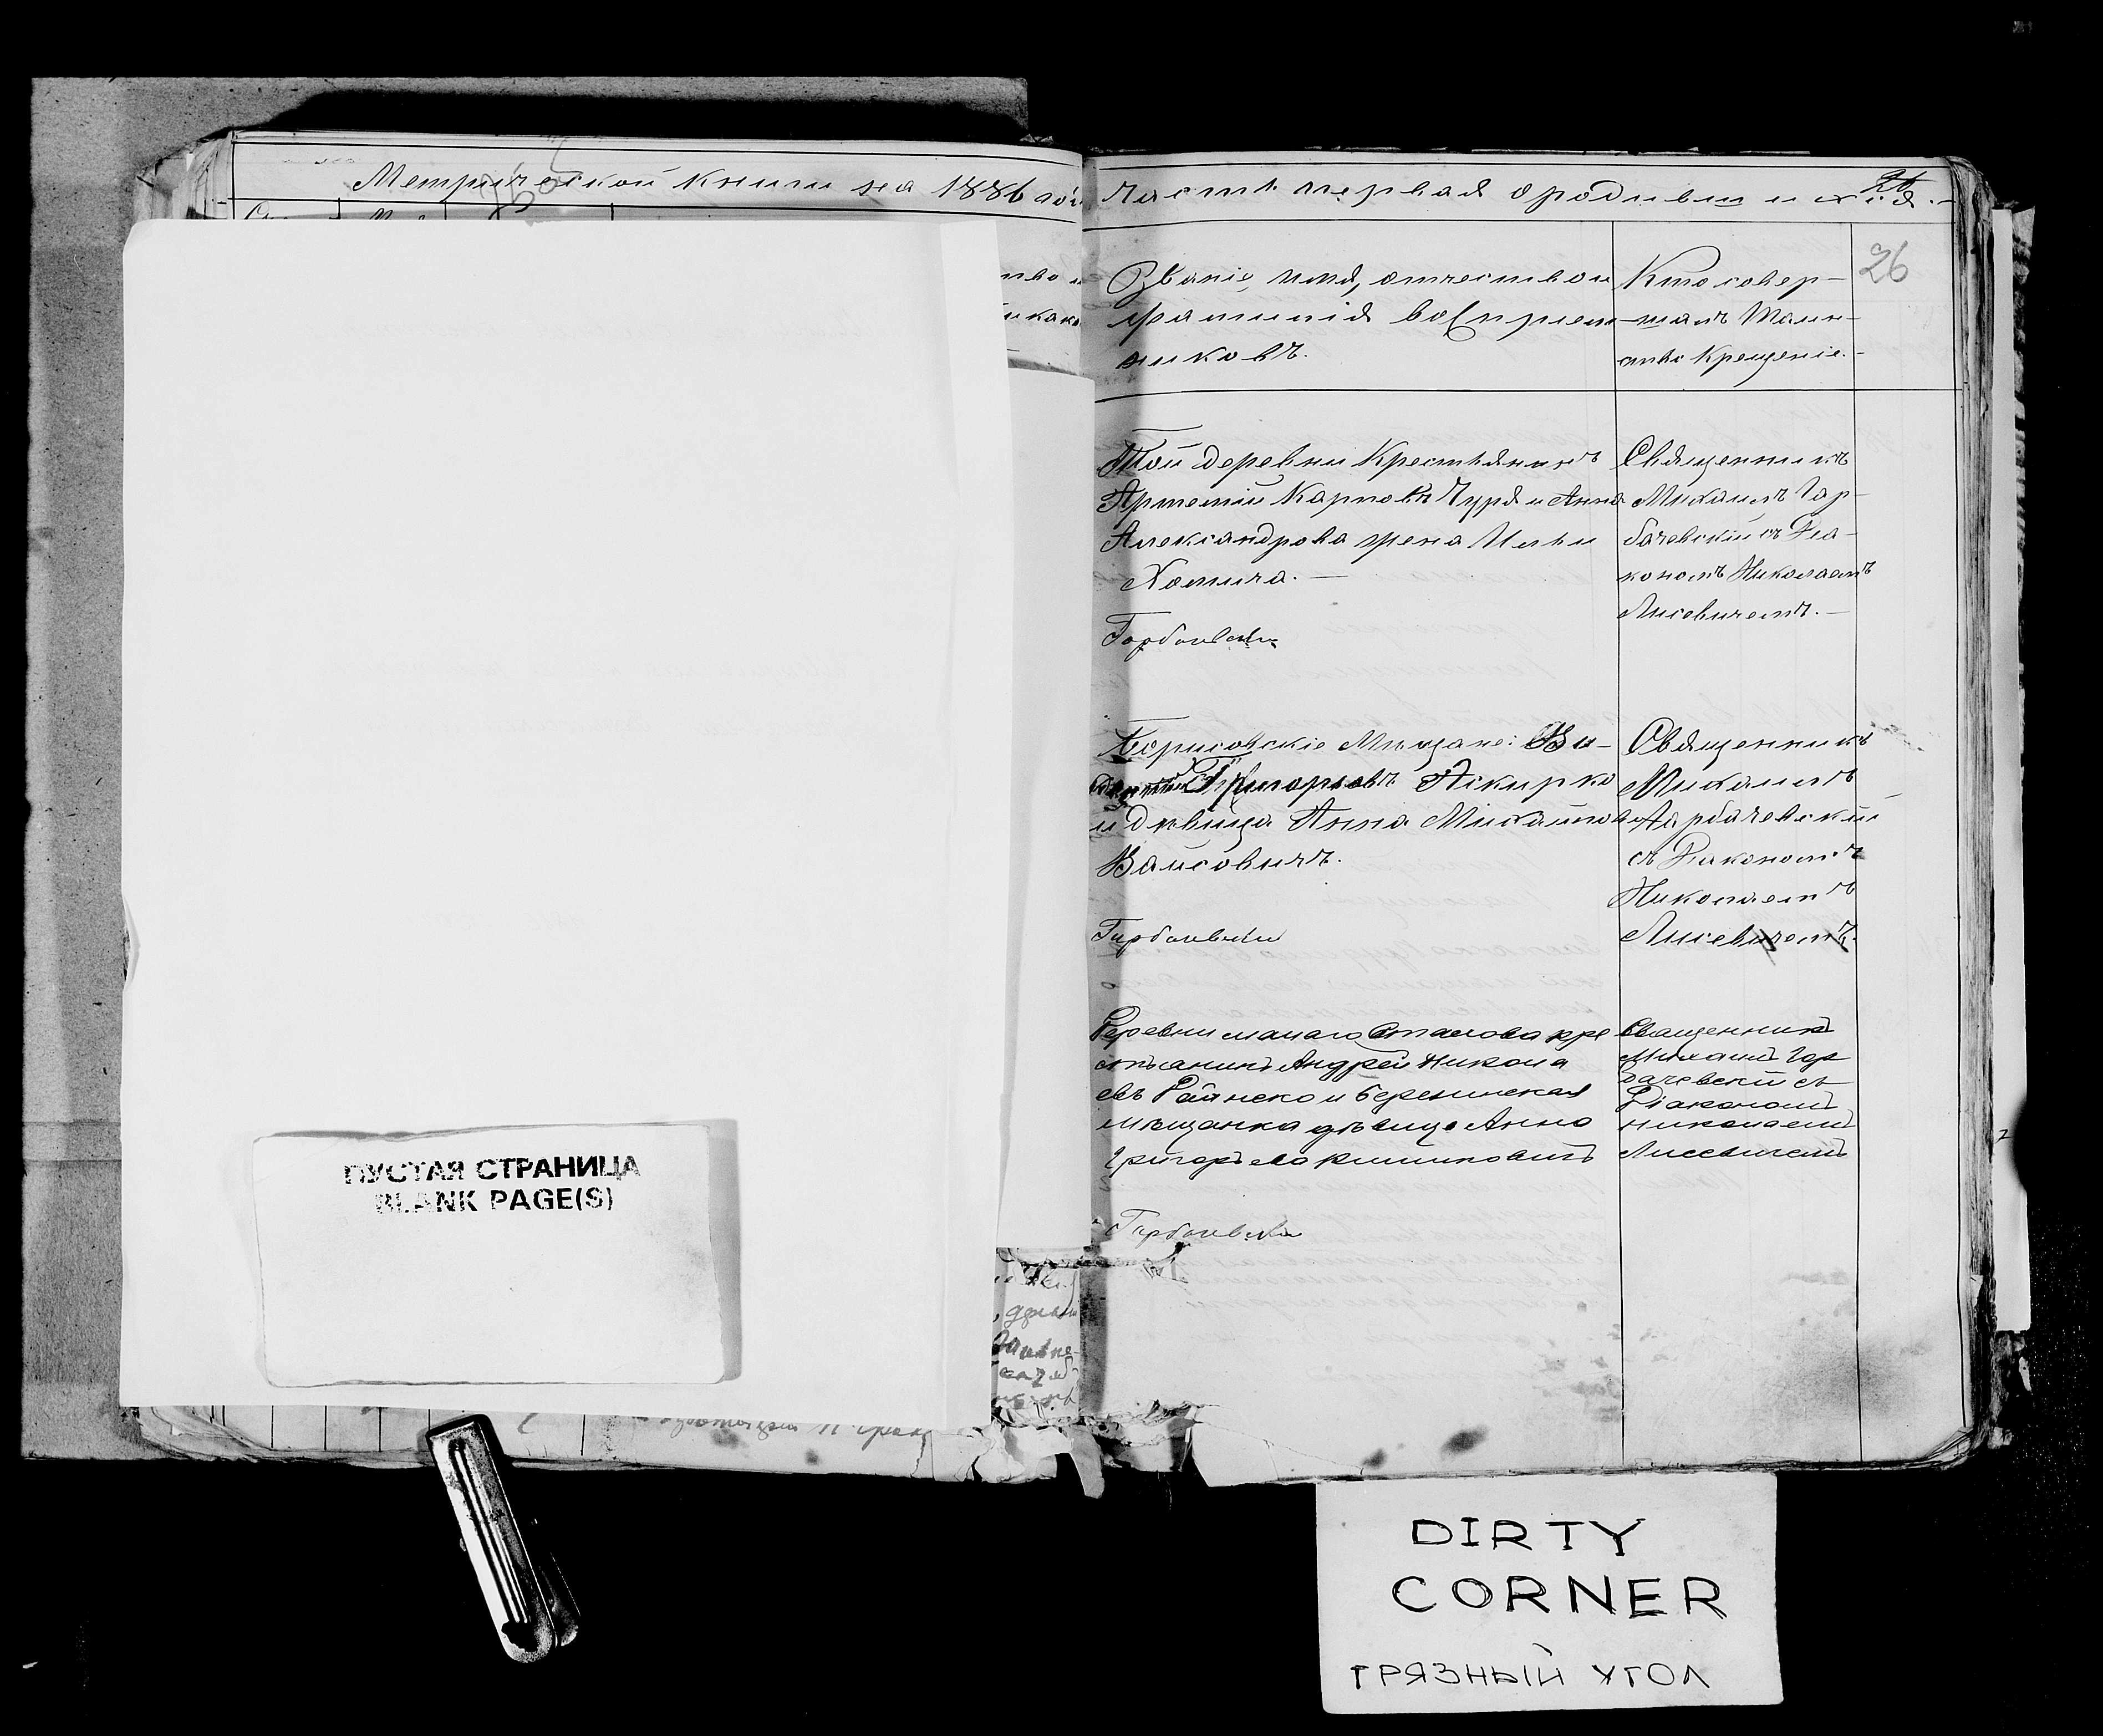 Метрической книги на 1886 год
часть первая о родившихся.
26
26
Званіе, имя, отчество и
фамилія воспріем-
никовъ.
Кто совер-
шалъ Таин-
ство Крещенія.
Той деревни Крестьянинъ
Артемій Карповъ Чурд и Анна
Александрова жена Ильи
Хомича.
Горбачевскій
Священникъ
Михаилъ Гар-
бачевскій съ Діа-
кономъ Николаемъ
Лисевичемъ.
Борисовскіе Мещане: Ви-
Григорьевъ Аскирко
и дѣвица Анна Михайлова
Вансовичъ.
Горбачевскій
Священникъ
Михаилъ
Гарбачевскій
съ Діакономъ
Николаемъ
Лисевичемъ.
Деревни малаго Стахова кре
стьянинъ Андрей Никола
евъ Райнеко и Березинская
мѣщанка дѣвица Анна
Григорьева Климковичъ
Горбачевскій
Священникъ
Михаилъ Гар
бачевскій съ
Діакономъ
Николаемъ
Лисевичемъ
ПУСТАЯ СТРАНИЦА
BLANK PAGE(S)
DIRTY
CORNER
ГРЯЗНЫЙ УГОЛ